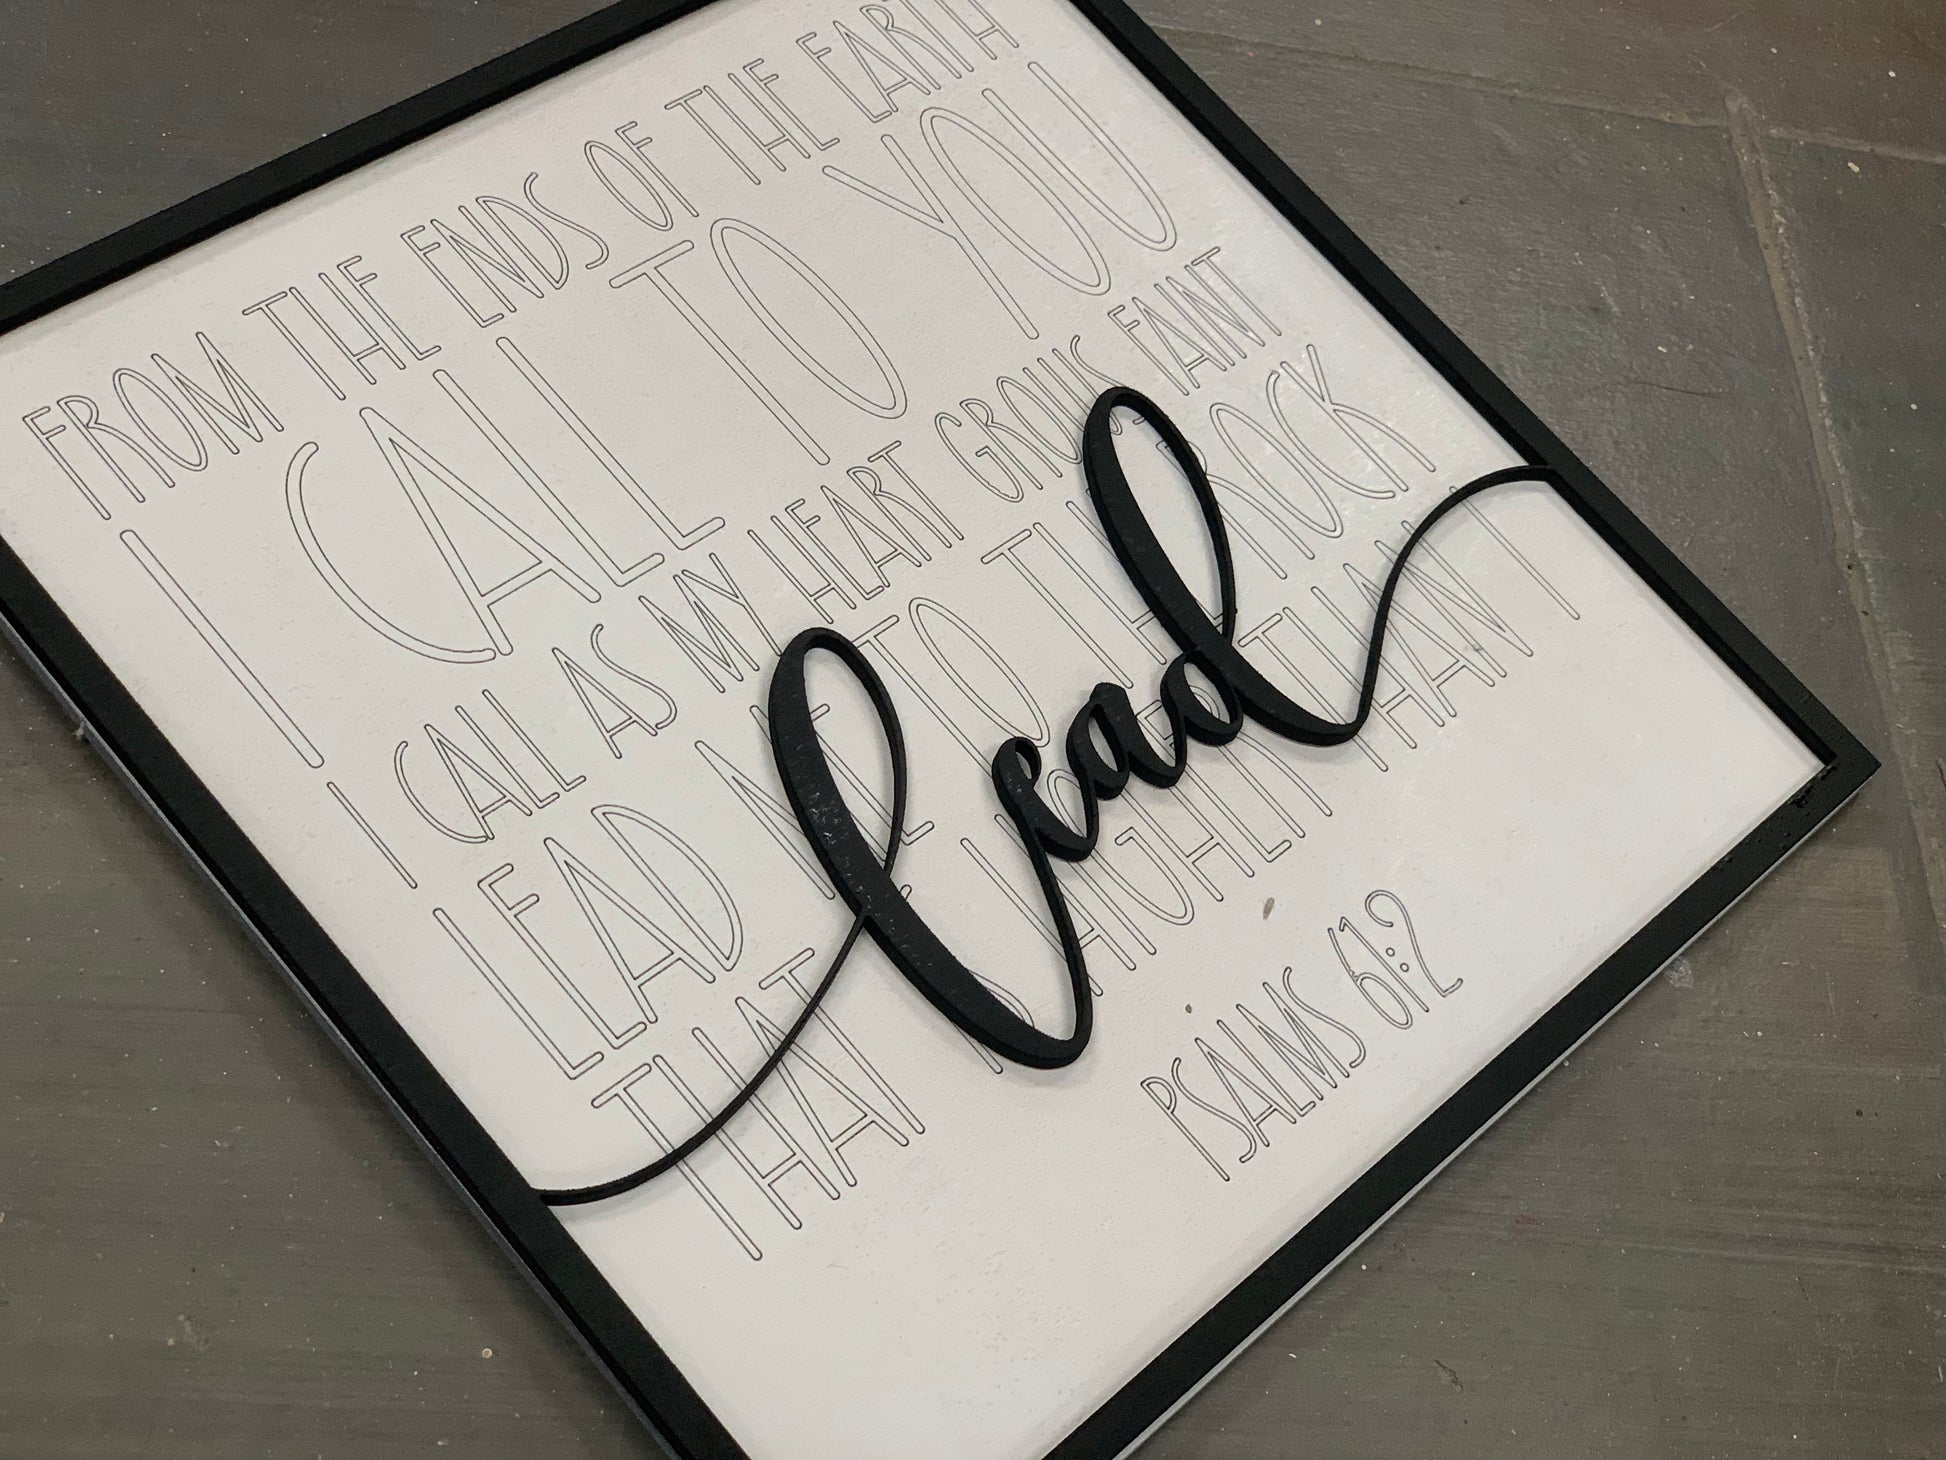 FROM THE ENDS OF THE EARTH
I CALL TO YOU
I CALL AS MY HEART GROWS FAINT
LEAD ME TO THE ROCK
THAT IS HIGHER THAN I
lead
PSALMS 61:2